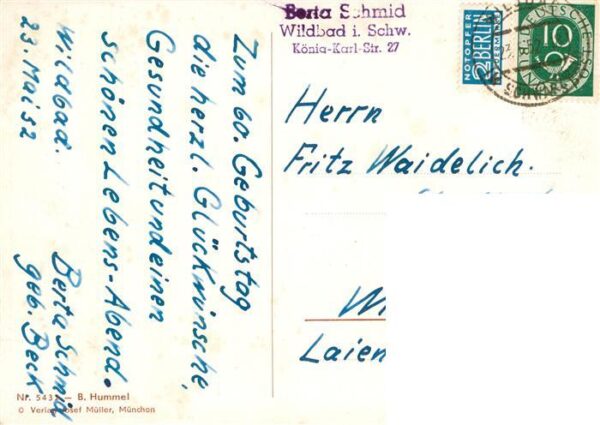 Zum 60. Geburtstag
die herzl. Glückwünsche,
Gesundheit und einen
schönen Lebens-Abend.
Wildbad.
23. Mai 52
Berta Schmid
geb. Beck
Nr. 543 — B. Hummel
© Verlag Josef Müller, München
Berta Schmid
Wildbad i. Schw.
König-Karl-Str. 27
NOTOPFER
2 BERLIN
STEUERMARKE
DEUTSCHE
10
BUNDESPOST
Herrn
Fritz Waidelich.
Laien